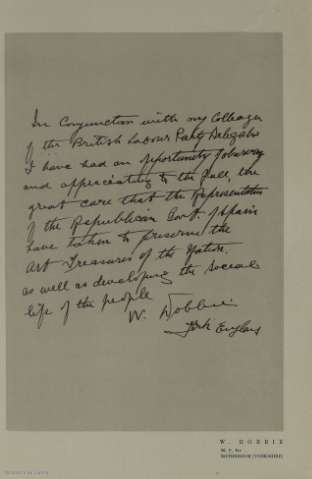 In Conjunction with my Colleagues
of the British Labour Party Delegation
I have had an opportunity of observing
and appreciating to the full, the
great care that the Representatives
of the Republican Govt. of Spain
have taken to preserve the
Art Treasures of the Nation.
as well as developing the social
life of the people
W. Dobbie
York England
W. DOBBIE
M. P. for
ROTHERHAM (YORKSHIRE)